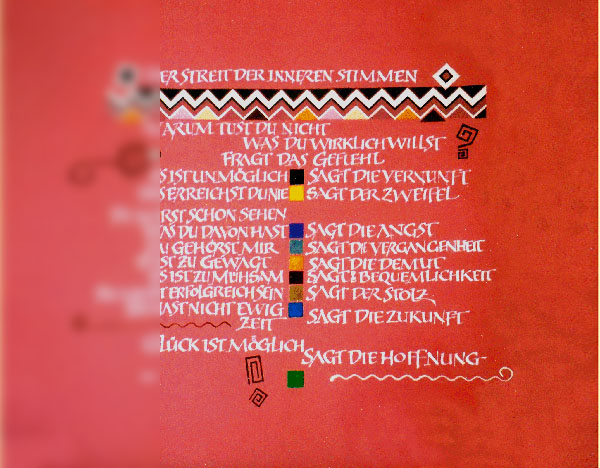 ER STREIT DER INNEREN STIMMEN
ARUM TUST DU NICHT
WAS DU WIRKLICH WILLST
FRAGT DAS GEFUEHL
S IST UNMÖGLICH SAGT DIE VERNUNFT
S ERREICHST DU NIE SAGT DER ZWEIFEL
RST SCHON SEHEN
AS DU DAVON HAST SAGT DIE ANGST
U GEHÖRST MIR SAGT DIE VERGANGENHEIT
ST ZU GEWAGT SAGT DIE DEMUT
S IST ZU MÜHSAM SAGT BEQUEMLICHKEIT
T ERFOLGREICH SEIN SAGT DER STOLZ
HAST NICHT EWIG
ZEIT SAGT DIE ZUKUNFT
LÜCK IST MÖGLICH
SAGT DIE HOFFNUNG-